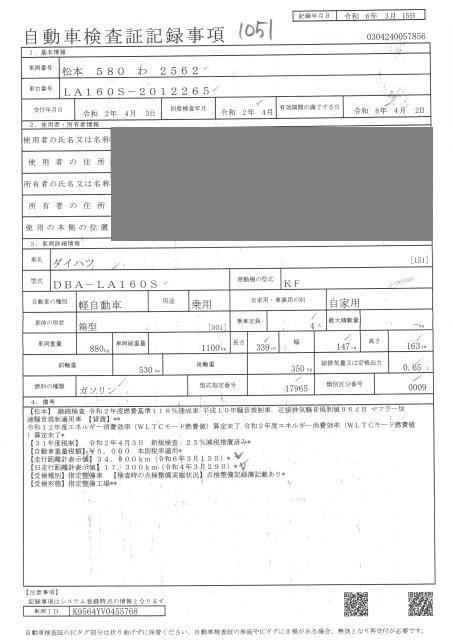 記録年月日 令和 6年 3月 15日
自動車検査証記録事項 1051
0304240057856
1. 基本情報
車両番号 松本 580 わ 2562
車台番号 LA160S-2012265
交付年月日 令和 2年 4月 3日 初度検査年月 令和 2年 4月 有効期間の満了する日 令和 8年 4月 2日
2. 使用者・所有者情報
使用者の氏名又は名称
使用者の住所
所有者の氏名又は名称
所有者の住所
使用の本拠の位置
3. 車両詳細情報
車名 ダイハツ [151]
型式 DBA-LA160S 原動機の型式 KF
自動車の種別 軽自動車 用途 乗用 自家用・事業用の別 自家用
車体の形状 箱型 [001] 乗車定員 4人 最大積載量 -kg
車両重量 880kg 車両総重量 1100kg 長さ 339cm 幅 147cm 高さ 163cm
前軸重 530kg 後軸重 350kg 総排気量又は定格出力 0.65 L
燃料の種類 ガソリン 型式指定番号 17965 類別区分番号 0009
4. 備考
【松本】 継続検査 令和2年度燃費基準116%達成車 平成10年騒音規制車 近接排気騒音規制値96dB マフラー加
速騒音規制適用車 【貸渡】**
令和12年度エネルギー消費効率(WLTCモード燃費値)算定未了 令和2年度エネルギー消費効率(WLTCモード燃費値
)算定未了*
【31年度税制】 令和2年4月3日 新規検査:25%減税措置済み*
【自動車重量税額】¥5,000 本則税率適用*
【走行距離計表示値】34,800km(令和6年3月15日)*
【旧走行距離計表示値】17,300km(令和4年3月29日)*
【受検種別】指定整備車 【検査時の点検整備実施状況】点検整備記録簿記載あり*
【受検形態】指定整備工場**
【注意事項】
記録事項はシステム登録時点の情報となります
車両ID K9564YV0455768
自動車検査証のICタグ部分は折り曲げずに保管ください。自動車検査証の券面やICタグにき損がある場合、無効となり再交付が必要です。